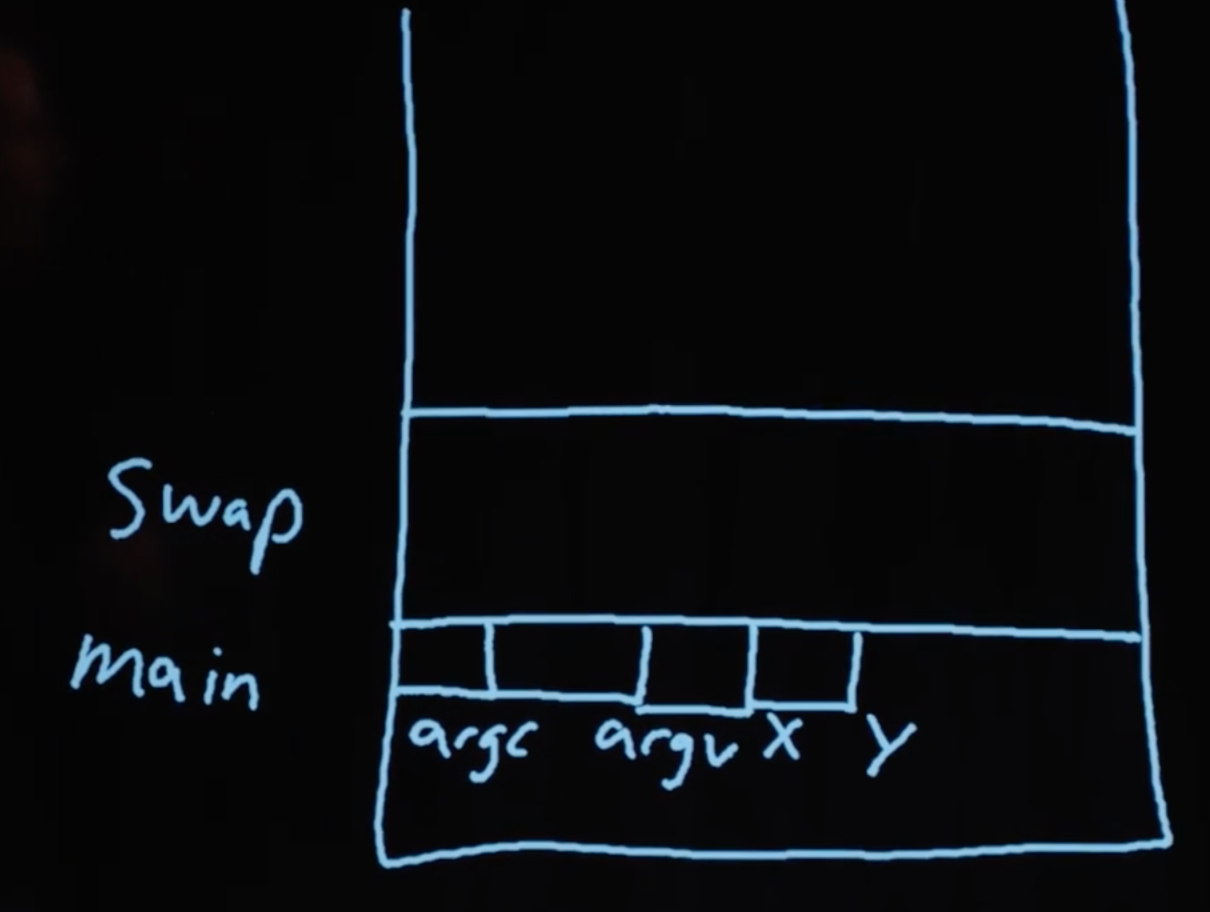 Swap
main
argc argv x y